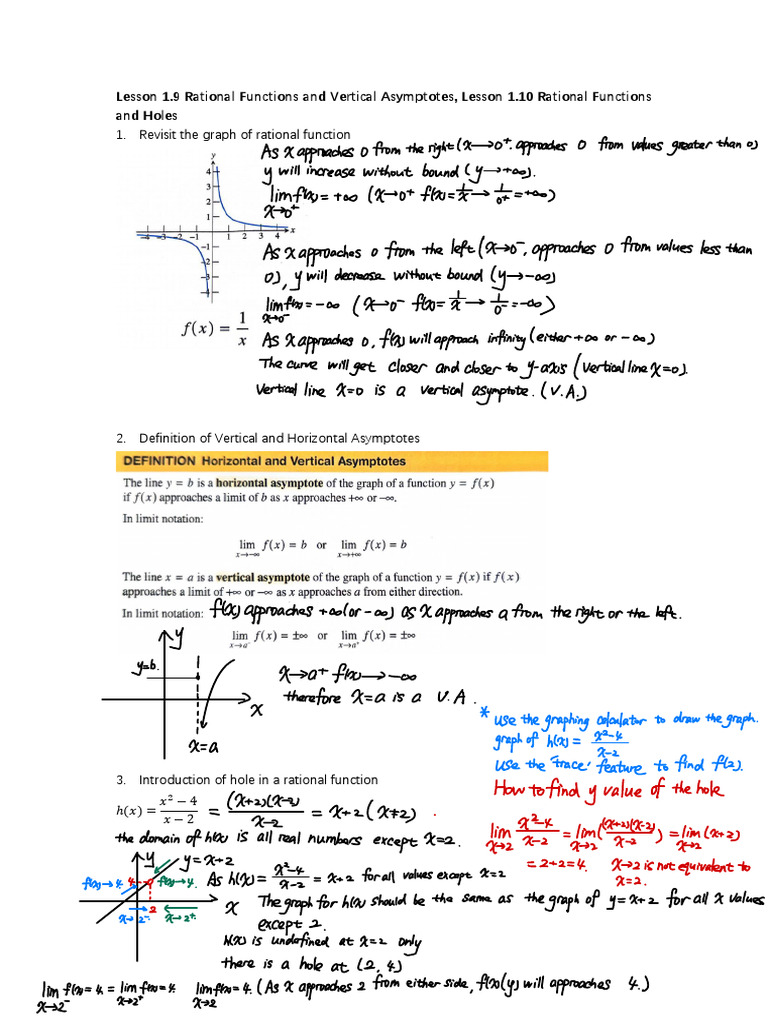 Lesson 1.9 Rational Functions and Vertical Asymptotes, Lesson 1.10 Rational Functions
and Holes
1. Revisit the graph of rational function
As x approaches 0 from the right (x→0⁺. approaches 0 from values greater than 0)
y will increase without bound (y→+∞).
lim f(x) = +∞ (x→0⁺ f(x)=1/x → 1/0⁺ = +∞)
x→0⁺
y
4
3
2
1
-4 -3 -2 -1 1 2 3 4 x
-1
-2
-3
-4
As x approaches 0 from the left (x→0⁻, approaches 0 from values less than
0), y will decrease without bound (y→-∞)
lim f(x) = -∞ (x→0⁻ f(x)=1/x → 1/0⁻ = -∞)
x→0⁻
f(x) = 1/x
As x approaches 0, f(x) will approach infinity (either +∞ or -∞)
The curve will get closer and closer to y-axis (vertical line x=0).
Vertical line x=0 is a vertical asymptote. (V.A.)
2. Definition of Vertical and Horizontal Asymptotes
DEFINITION Horizontal and Vertical Asymptotes
The line y = b is a horizontal asymptote of the graph of a function y = f(x)
if f(x) approaches a limit of b as x approaches +∞ or -∞.
In limit notation:
lim f(x) = b or lim f(x) = b
x→-∞ x→+∞
The line x = a is a vertical asymptote of the graph of a function y = f(x) if f(x)
approaches a limit of +∞ or -∞ as x approaches a from either direction.
In limit notation: f(x) approaches +∞ (or -∞) as x approaches a from the right or the left.
lim f(x) = ±∞ or lim f(x) = ±∞
x→a⁻ x→a⁺
y
y=b.
x
x=a
x→a⁺ f(x)→-∞
therefore x=a is a V.A.
* use the graphing calculator to draw the graph.
graph of h(x) = x²-4/x-2
use the "trace" feature to find f(2).
3. Introduction of hole in a rational function
How to find y value of the hole
h(x) = x² − 4/x − 2 = (x+2)(x-2)/x-2 = x+2 (x≠2)
lim x²-4/x-2 = lim ((x+2)(x-2)/x-2) = lim (x+2)
x→2 x→2 x→2
= 2+2=4. x→2 is not equivalent to
x=2.
the domain of h(x) is all real numbers except x=2.
y
y=x+2
f(x)→4 4 f(x)→4.
x
2
x→2⁻ x→2⁺
As h(x) = x²-4/x-2 = x+2 for all values except x=2
The graph for h(x) should be the same as the graph of y=x+2 for all x values
except 2.
h(x) is undefined at x=2 only
there is a hole at (2, 4)
lim f(x)=4 = lim f(x)=4 lim f(x)=4. (As x approaches 2 from either side, f(x)(y) will approaches 4.)
x→2⁻ x→2⁺ x→2